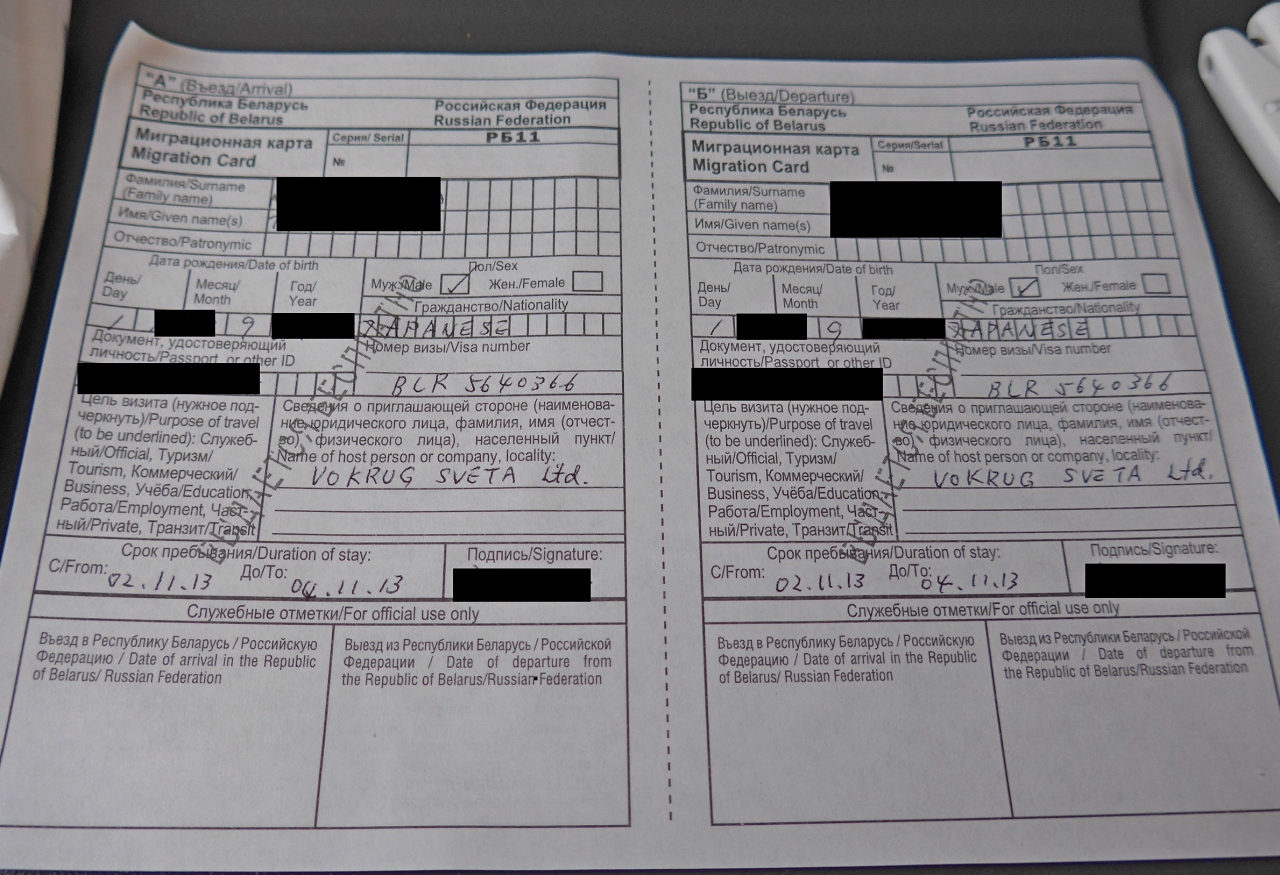 "А" (Въезд/Arrival)
Республика Беларусь Российская Федерация
Republic of Belarus Russian Federation
Миграционная карта Серия/ Serial РБ11
Migration Card №
Фамилия/Surname
(Family name)
Имя/Given name(s)
Отчество/Patronymic
Дата рождения/Date of birth Пол/Sex
День/ Месяц/ Год/ Муж./Male Жен./Female
Day Month Year
Гражданство/Nationality
1 9 JAPANESE
Документ, удостоверяющий Номер визы/Visa number
личность/Passport or other ID
BLR 5640366
Цель визита (нужное под-
черкнуть)/Purpose of travel
(to be underlined): Служеб-
ный/Official, Туризм/
Tourism, Коммерческий/
Business, Учёба/Education,
Работа/Employment, Част-
ный/Private, Транзит/Transit
Сведения о приглашающей стороне (наименова-
ние юридического лица, фамилия, имя (отчест-
во) физического лица), населенный пункт/
Name of host person or company, locality:
VOKRUG SVETA Ltd.
ВЫДАЕТСЯ БЕСПЛАТНО
Срок пребывания/Duration of stay: Подпись/Signature:
С/From: 02.11.13 До/To: 04.11.13
Служебные отметки/For official use only
Въезд в Республику Беларусь / Российскую
Федерацию / Date of arrival in the Republic
of Belarus/ Russian Federation
Выезд из Республики Беларусь / Российской
Федерации / Date of departure from
the Republic of Belarus/Russian Federation
"Б" (Выезд/Departure)
Республика Беларусь Российская Федерация
Republic of Belarus Russian Federation
Миграционная карта Серия/Serial РБ11
Migration Card №
Фамилия/Surname
(Family name)
Имя/Given name(s)
Отчество/Patronymic
Дата рождения/Date of birth Пол/Sex
День/ Месяц/ Год/ Муж./Male Жен./Female
Day Month Year
Гражданство/Nationality
1 9 JAPANESE
Документ, удостоверяющий Номер визы/Visa number
личность/Passport or other ID
BLR 5640366
Цель визита (нужное под-
черкнуть)/Purpose of travel
(to be underlined): Служеб-
ный/Official, Туризм/
Tourism, Коммерческий/
Business, Учёба/Education,
Работа/Employment, Част-
ный/Private, Транзит/Transit
Сведения о приглашающей стороне (наименова-
ние юридического лица, фамилия, имя (отчест-
во) физического лица), населенный пункт/
Name of host person or company, locality:
VOKRUG SVETA Ltd.
ВЫДАЕТСЯ БЕСПЛАТНО
Срок пребывания/Duration of stay: Подпись/Signature:
С/From: 02.11.13 До/To: 04.11.13
Служебные отметки/For official use only
Въезд в Республику Беларусь / Российскую
Федерацию / Date of arrival in the Republic
of Belarus/ Russian Federation
Выезд из Республики Беларусь / Российской
Федерации / Date of departure from
the Republic of Belarus/Russian Federation